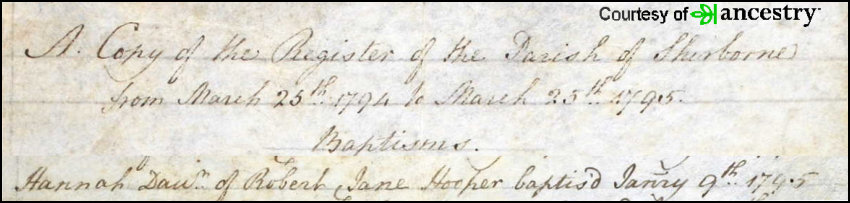 Courtesy of ancestry
A Copy of the Register of the Parish of Sherborne
from March 25th 1794 to March 25th 1795.
Baptisms.
Hannah Daur of Robert Jane Hooper baptis'd Janry 9th 1795